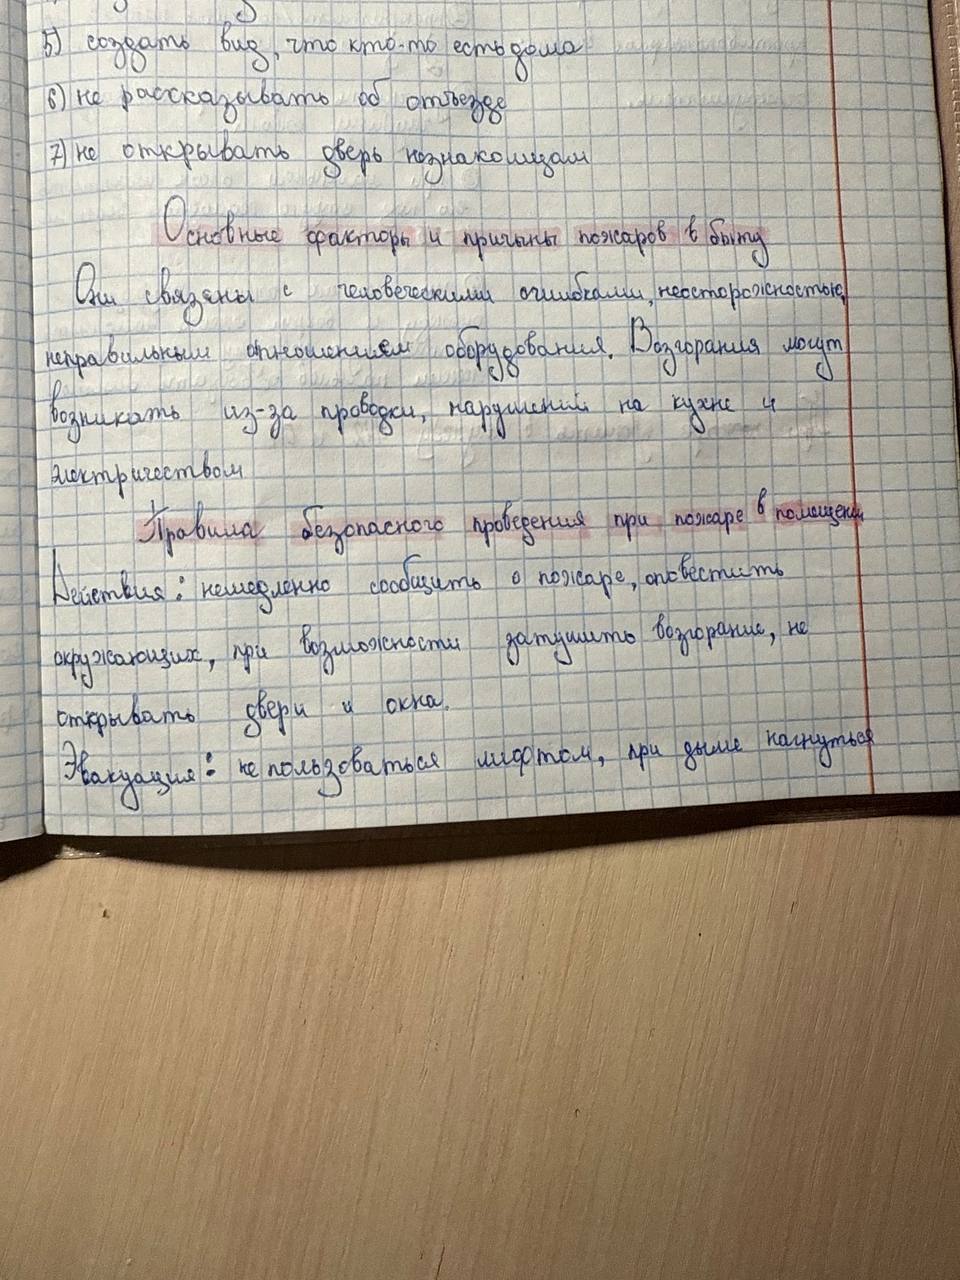 5) создать вид, что кто-то есть дома
6) не рассказывать об отъезде
7) не открывать дверь незнакомцам
Основные факторы и причины пожаров в быту
Они связаны с человеческими ошибками, неосторожностью,
неправильным отношением оборудования. Возгорания могут
возникать из-за проводки, нарушений на кухне и
электричеством
Правила безопасного проведения при пожаре в помощении
Действия: немедленно сообщить о пожаре, оповестить
окружающих, при возможности затушить возгорание, не
открывать двери и окна.
Эвакуация: не пользоваться лифтом, при дыме нагнуться